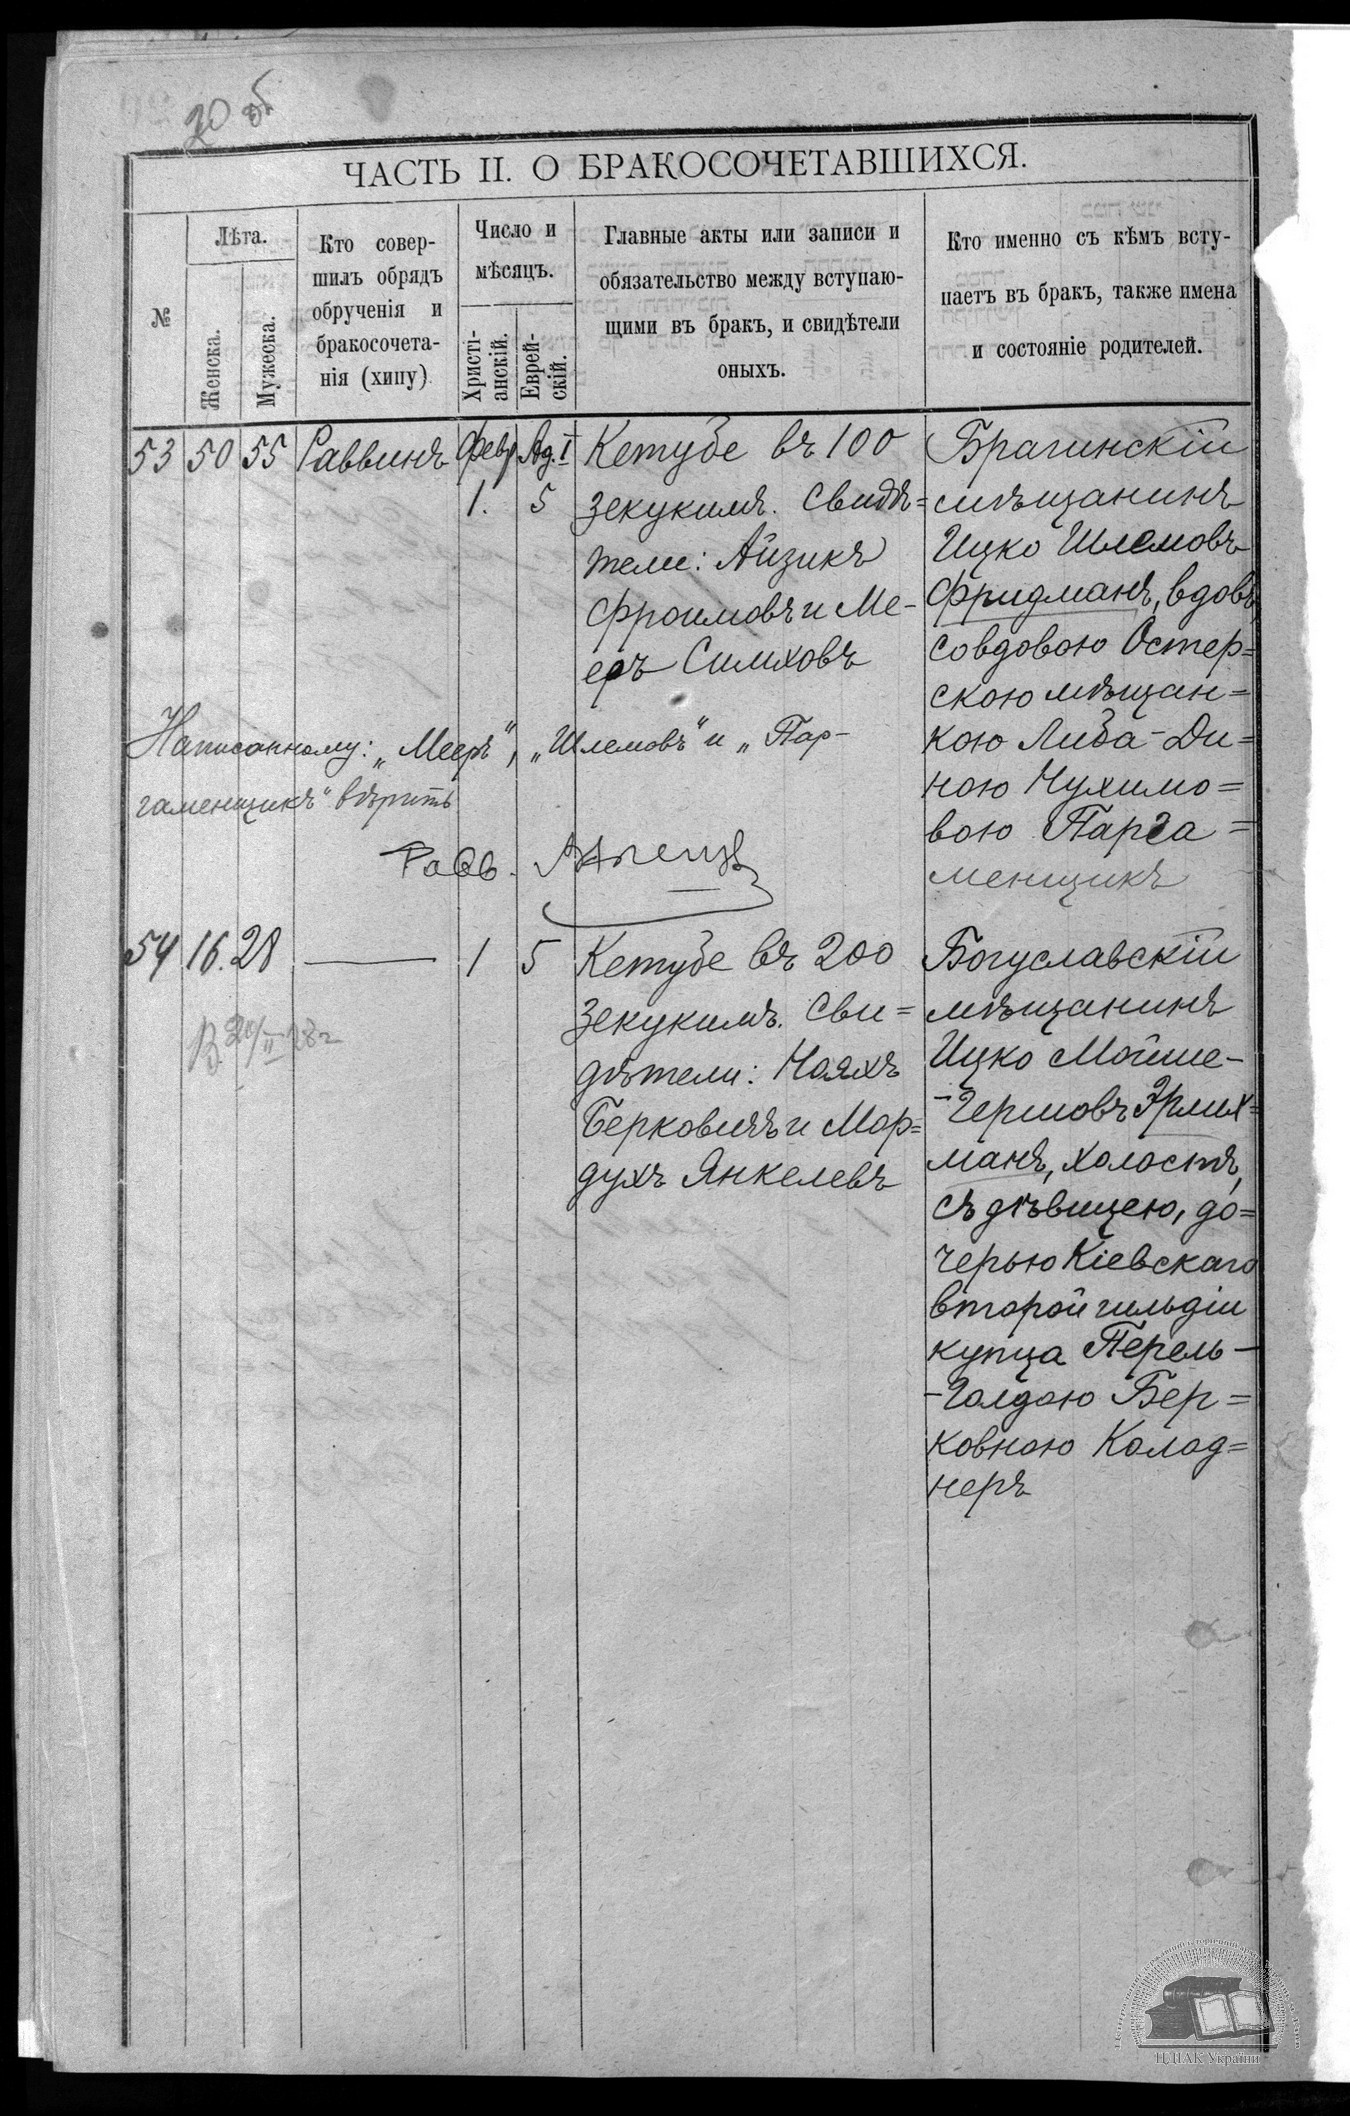 20 об
ЧАСТЬ II. О БРАКОСОЧЕТАВШИХСЯ.
№
Лѣта.
Женска.
Мужеска.
Кто совер-
шилъ обрядъ
обрученія и
бракосочета-
нія (хипу)
Число и
мѣсяцъ.
Христі-
анскій.
Еврей-
скій.
Главные акты или записи и
обязательство между вступаю-
щими въ бракъ, и свидѣтели
оныхъ.
Кто именно съ кѣмъ всту-
паетъ въ бракъ, также имена
и состояніе родителей.
53 50 55 Раввинъ Февр Ад. I
1. 5
Кетубе въ 100
зекукимъ. Свидѣ=
тели: Айзикъ
Фроимовъ и Ме-
еръ Симховъ
Брагинскій
мѣщанинъ
Ицко Шлемовъ
Фридманъ, вдовъ,
со вдовою Остер=
скою мѣщан=
кою Либа-Ди=
ною Нухимо=
вою Парга=
менщикъ
Написанному: „Мееръ“, „Шлемовъ“ и „Пар-
гаменщикъ“ вѣрить
Равв.
54 16. 28 — 1 5
Кетубе въ 200
зекукимъ. Сви=
дѣтели: Нояхъ
Берковичъ и Мор=
духъ Янкелевъ
Богуславскій
мѣщанинъ
Ицко Мойше-
-Гершовъ Эрлих=
манъ, холостъ,
съ дѣвицею, до=
черью Кіевскаго
второй гильдіи
купца Перель-
-Голдою Бер=
ковною Колод=
неръ
ЦДІАК України